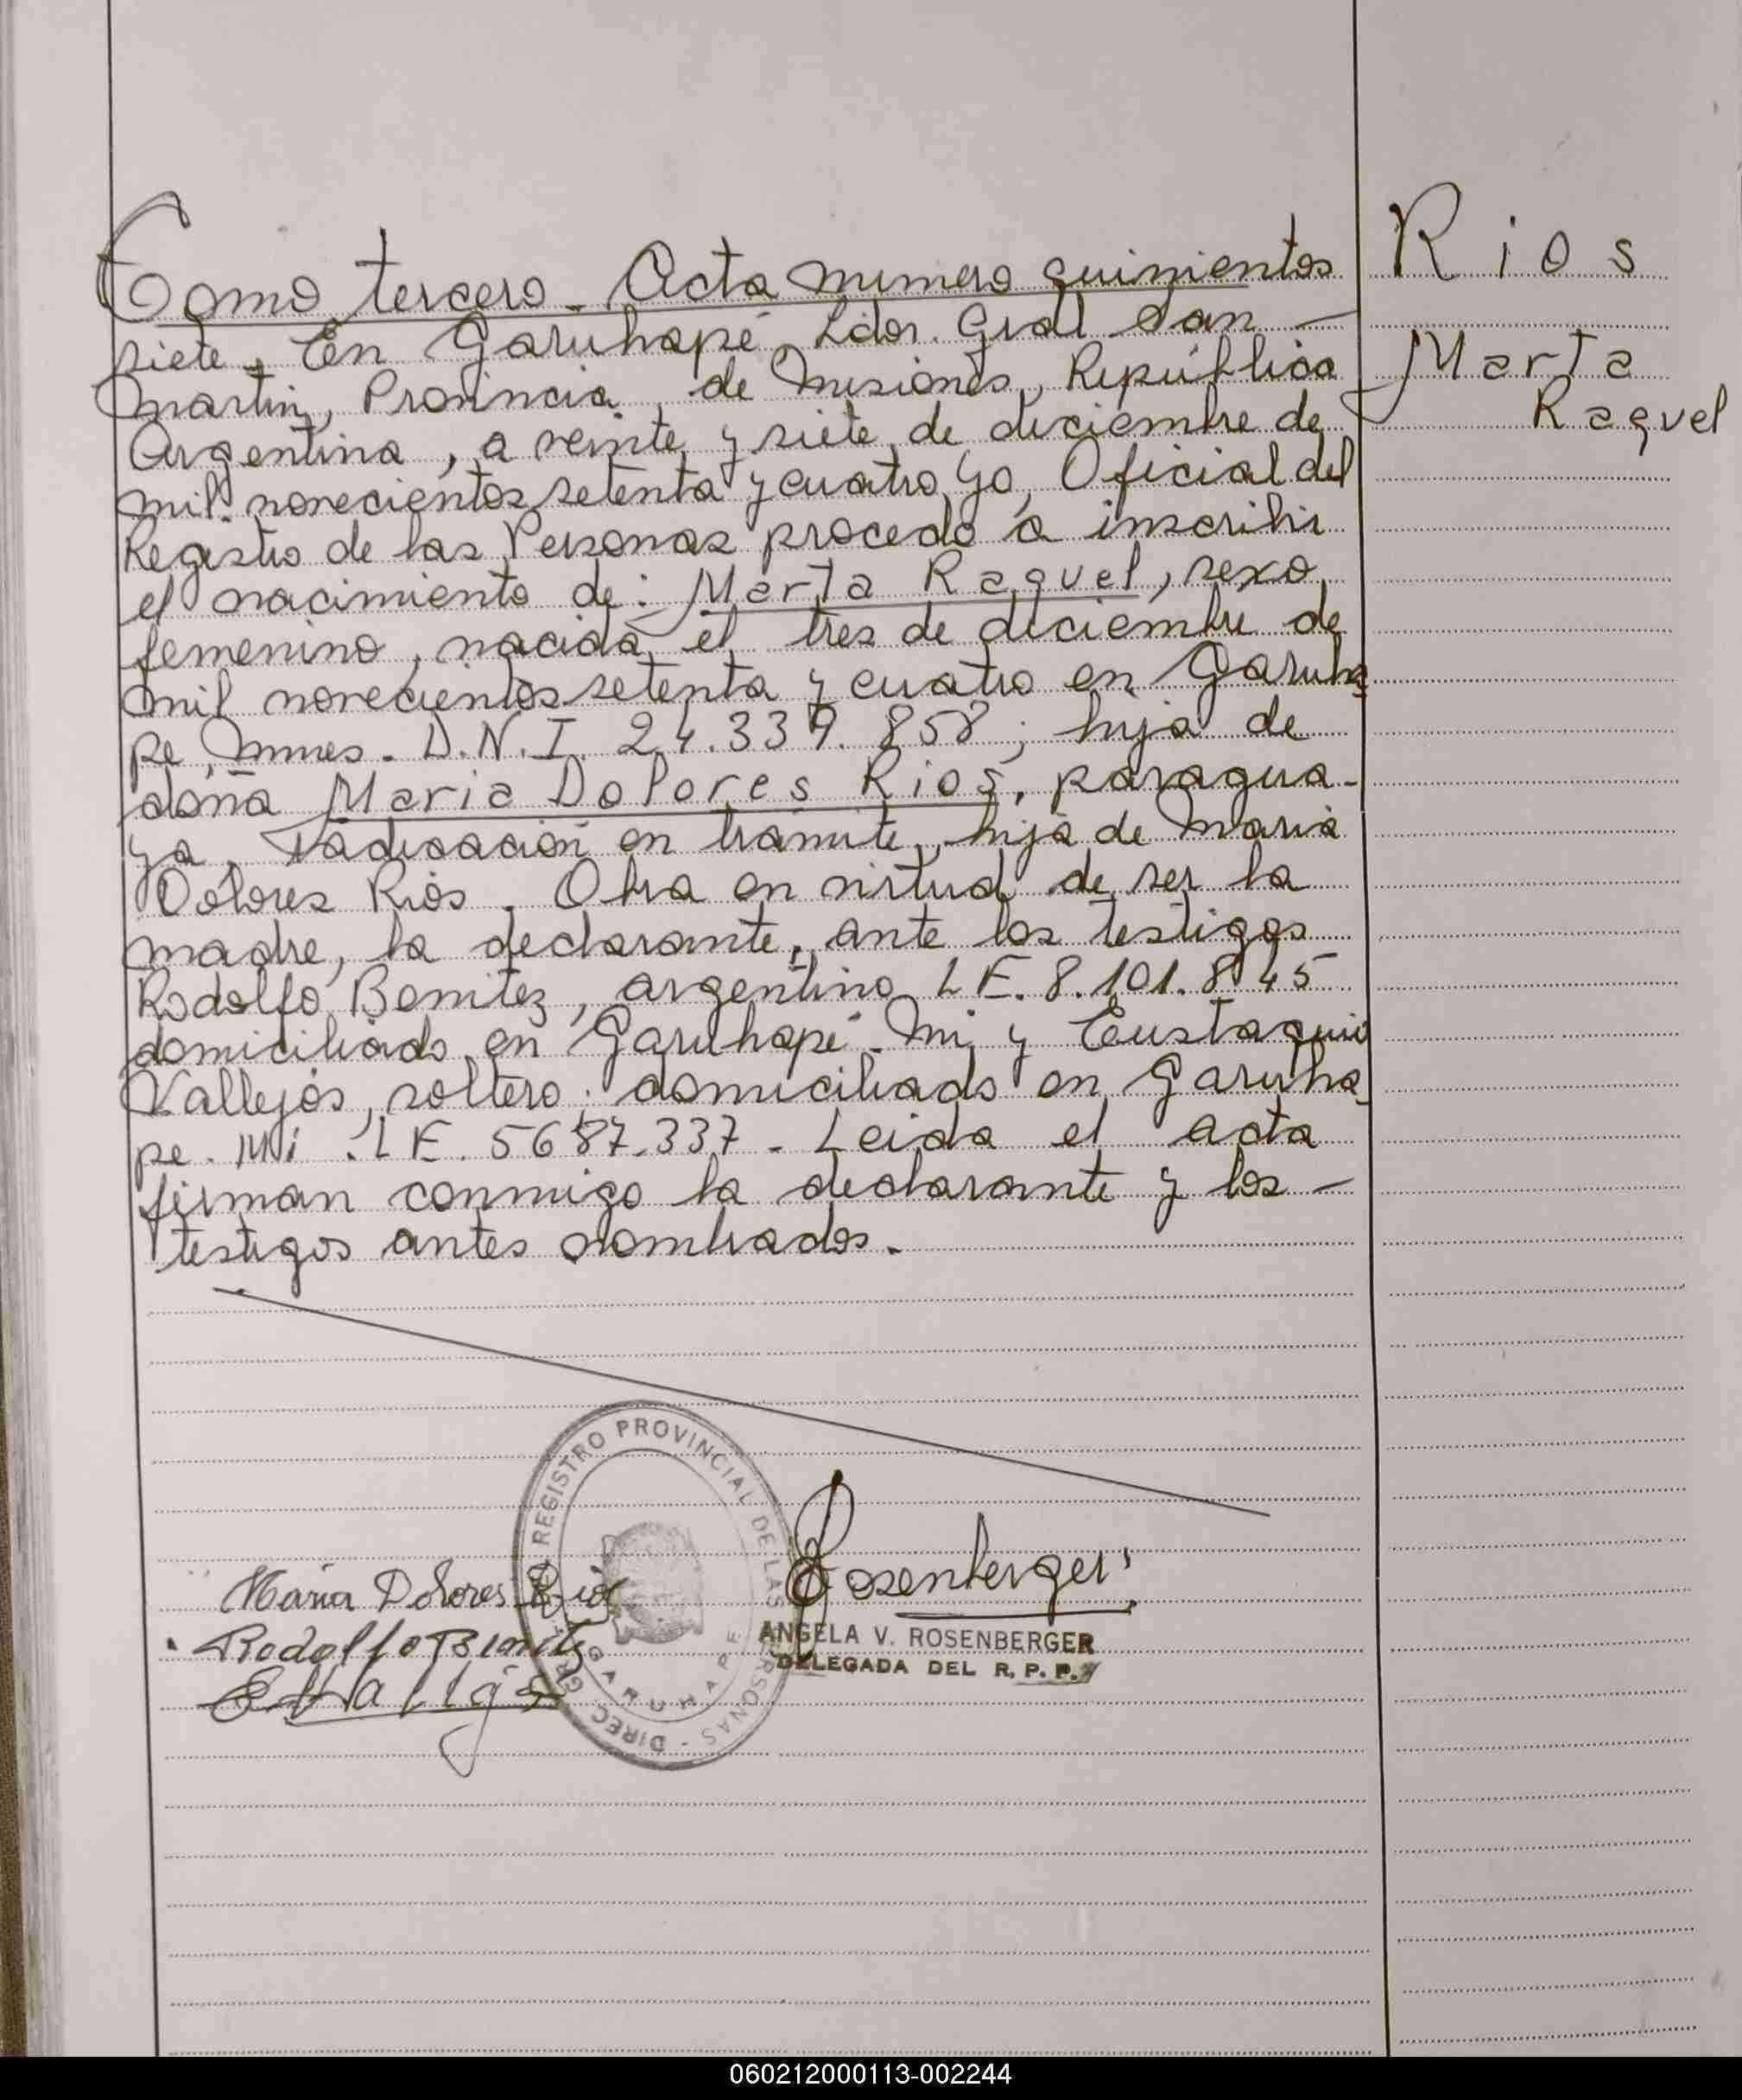 Tomo tercero - Acta numero quinientos
siete. En Garuhapé, Ldor. Gral San -
Martin, Provincia de Misiones, República
Argentina, a veinte y siete de diciembre de
mil novecientos setenta y cuatro, yo, Oficial del
Registro de las Personas procedo a inscribir
el nacimiento de: Marta Raquel, sexo
femenino, nacida el tres de diciembre de
mil novecientos setenta y cuatro en Garuha
pe, Mnes. D.N.I. 24.339.858; hija de
doña Maria Dolores Rios, paragua-
ya, radicación en trámite, hija de Maria
Dolores Rios. Obra en virtud de ser la
madre, la declarante, ante los testigos
Rodolfo Benitez, argentino L E. 8.101.845
domiciliado en Garuhapé - Mi y Eustaquio
Vallejos, soltero. domiciliado en Garuha-
pe. Mi. L E. 5687.337 - Leida el acta
firman conmigo la declarante y los -
testigos antes nombrados.
Rios
Marta
Raquel
REGISTRO PROVINCIAL DE LAS PERSONAS - DIREC. GRAL.
GARUHAPE
Maria Dolores Rios
Rodolfo Benitez
E Vallejos
Rosenberger
ANGELA V. ROSENBERGER
DELEGADA DEL R. P. P.
060212000113-002244